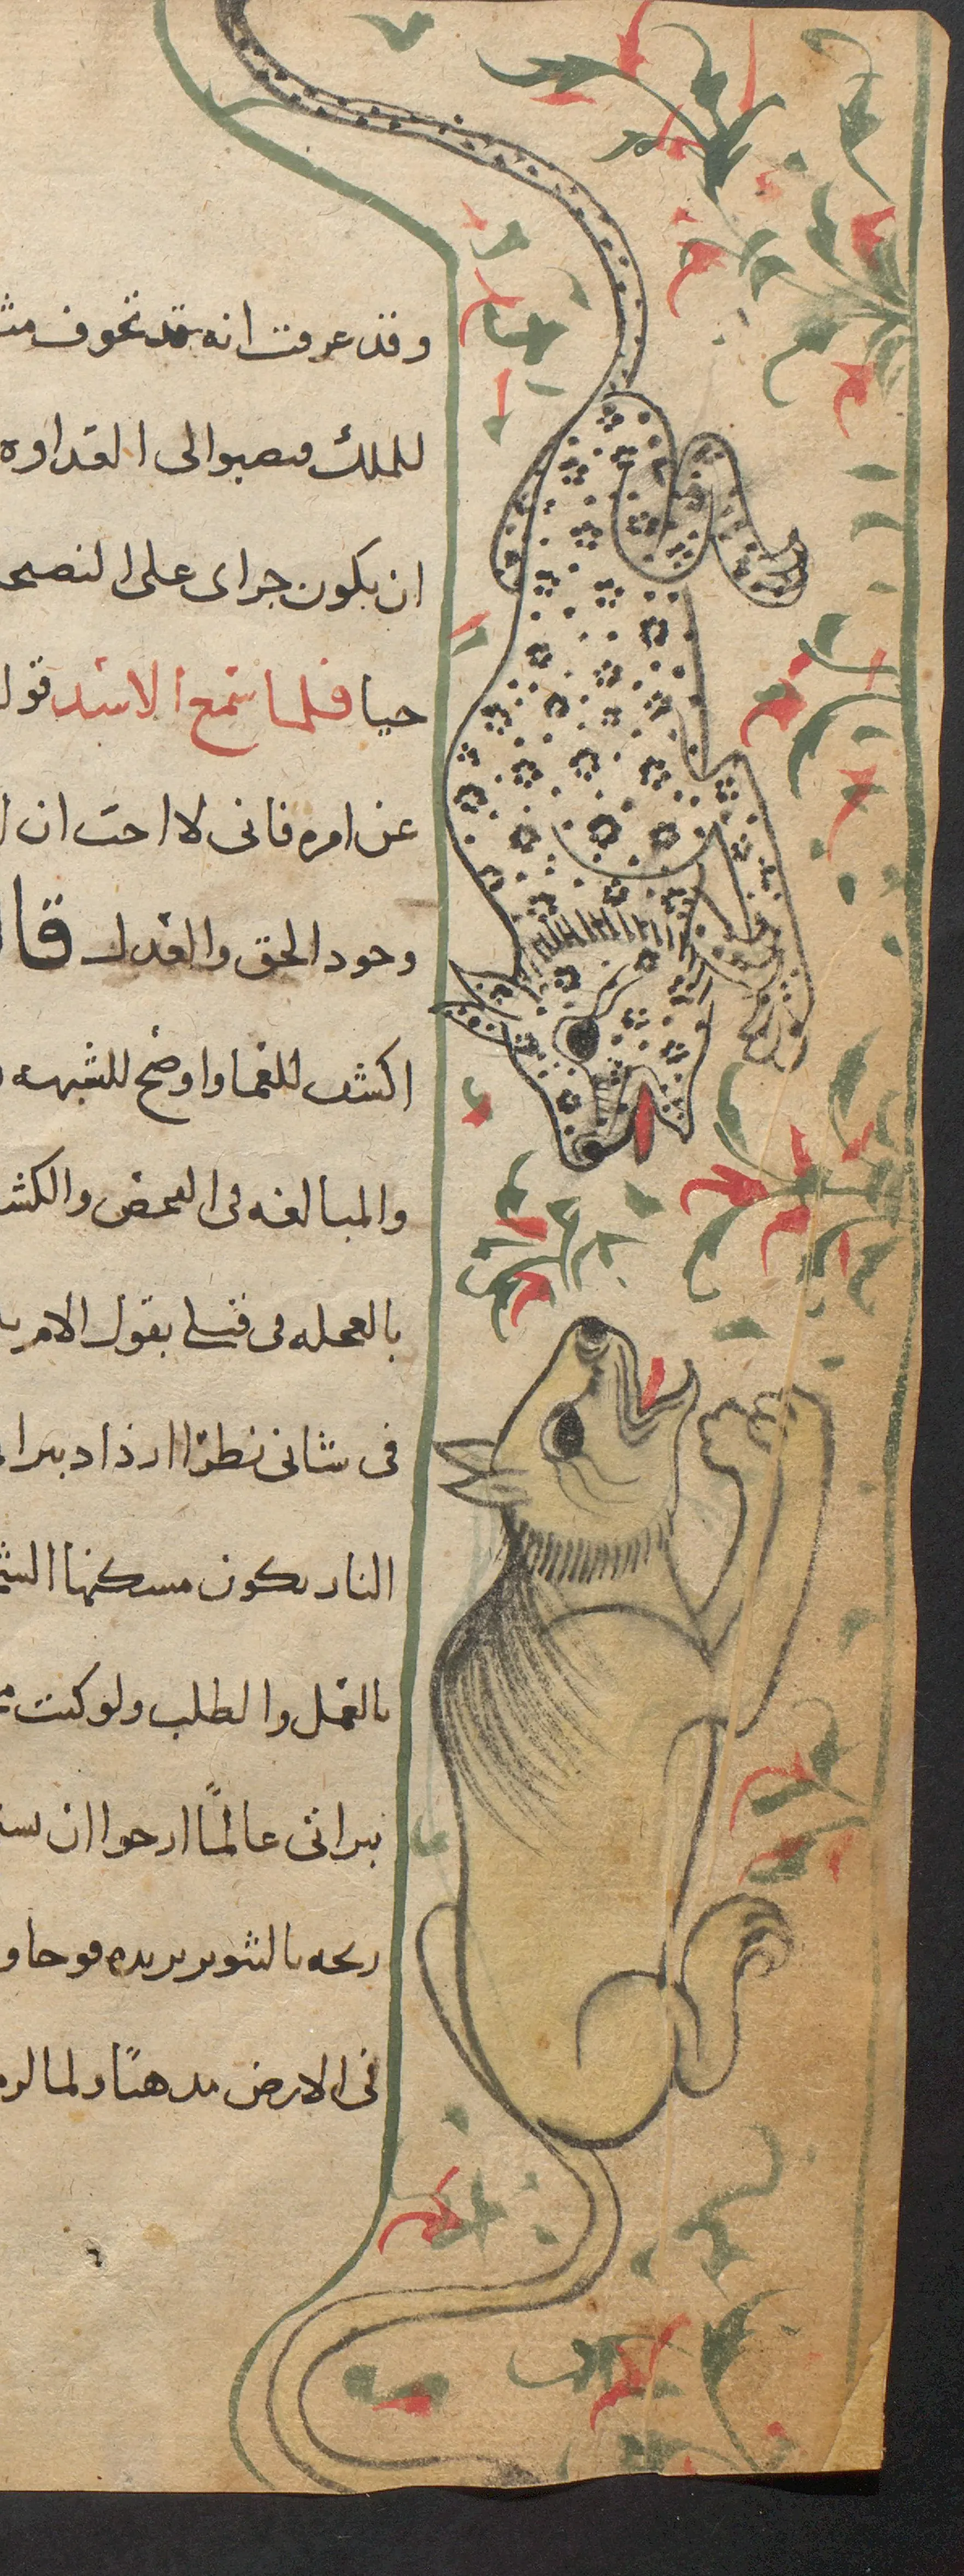 وقد عرفت انه قد تخوف
للملك فصبوا لى العداوه
ان يكون جراى على النصح
حيا فلما سمع الاسد قول
عن امره فانى لا احب ان
وجود الحق والعدل قال
اكشف للعما واوضح للشبهه
والمبالغه فى الفحص والكشف
بالعجله فى قتلى بقول الا
فى شانى نظرا ازداد ببرا
النار يكون مسكنها
بالعمل والطلب ولو كنت
ببراتى عالمًا ارجوا ان
ريحه بالتثوير يريده فوحا و
فى الارض مذهبًا ولما